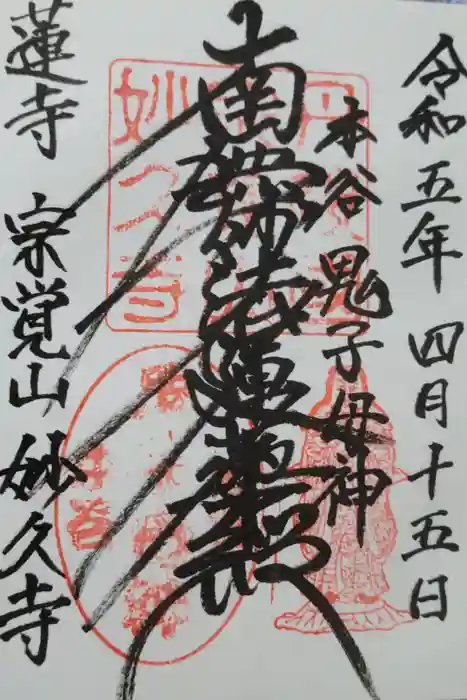 令和五年 四月十五日
本谷 鬼子母神
南無妙法蓮華経
蓮寺 宗覚山 妙久寺